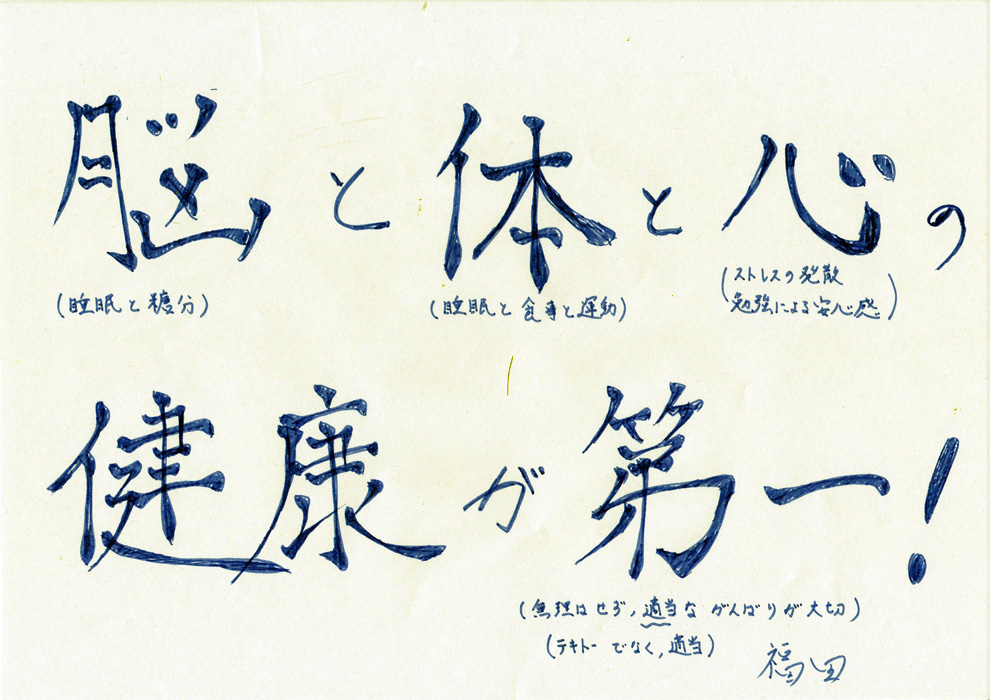 脳と体と心の
(睡眠と糖分)
(睡眠と食事と運動)
(ストレスの発散
勉強による安心感)
健康が第一!
(無理はせず,適当ながんばりが大切)
(テキトーでなく,適当)
福田